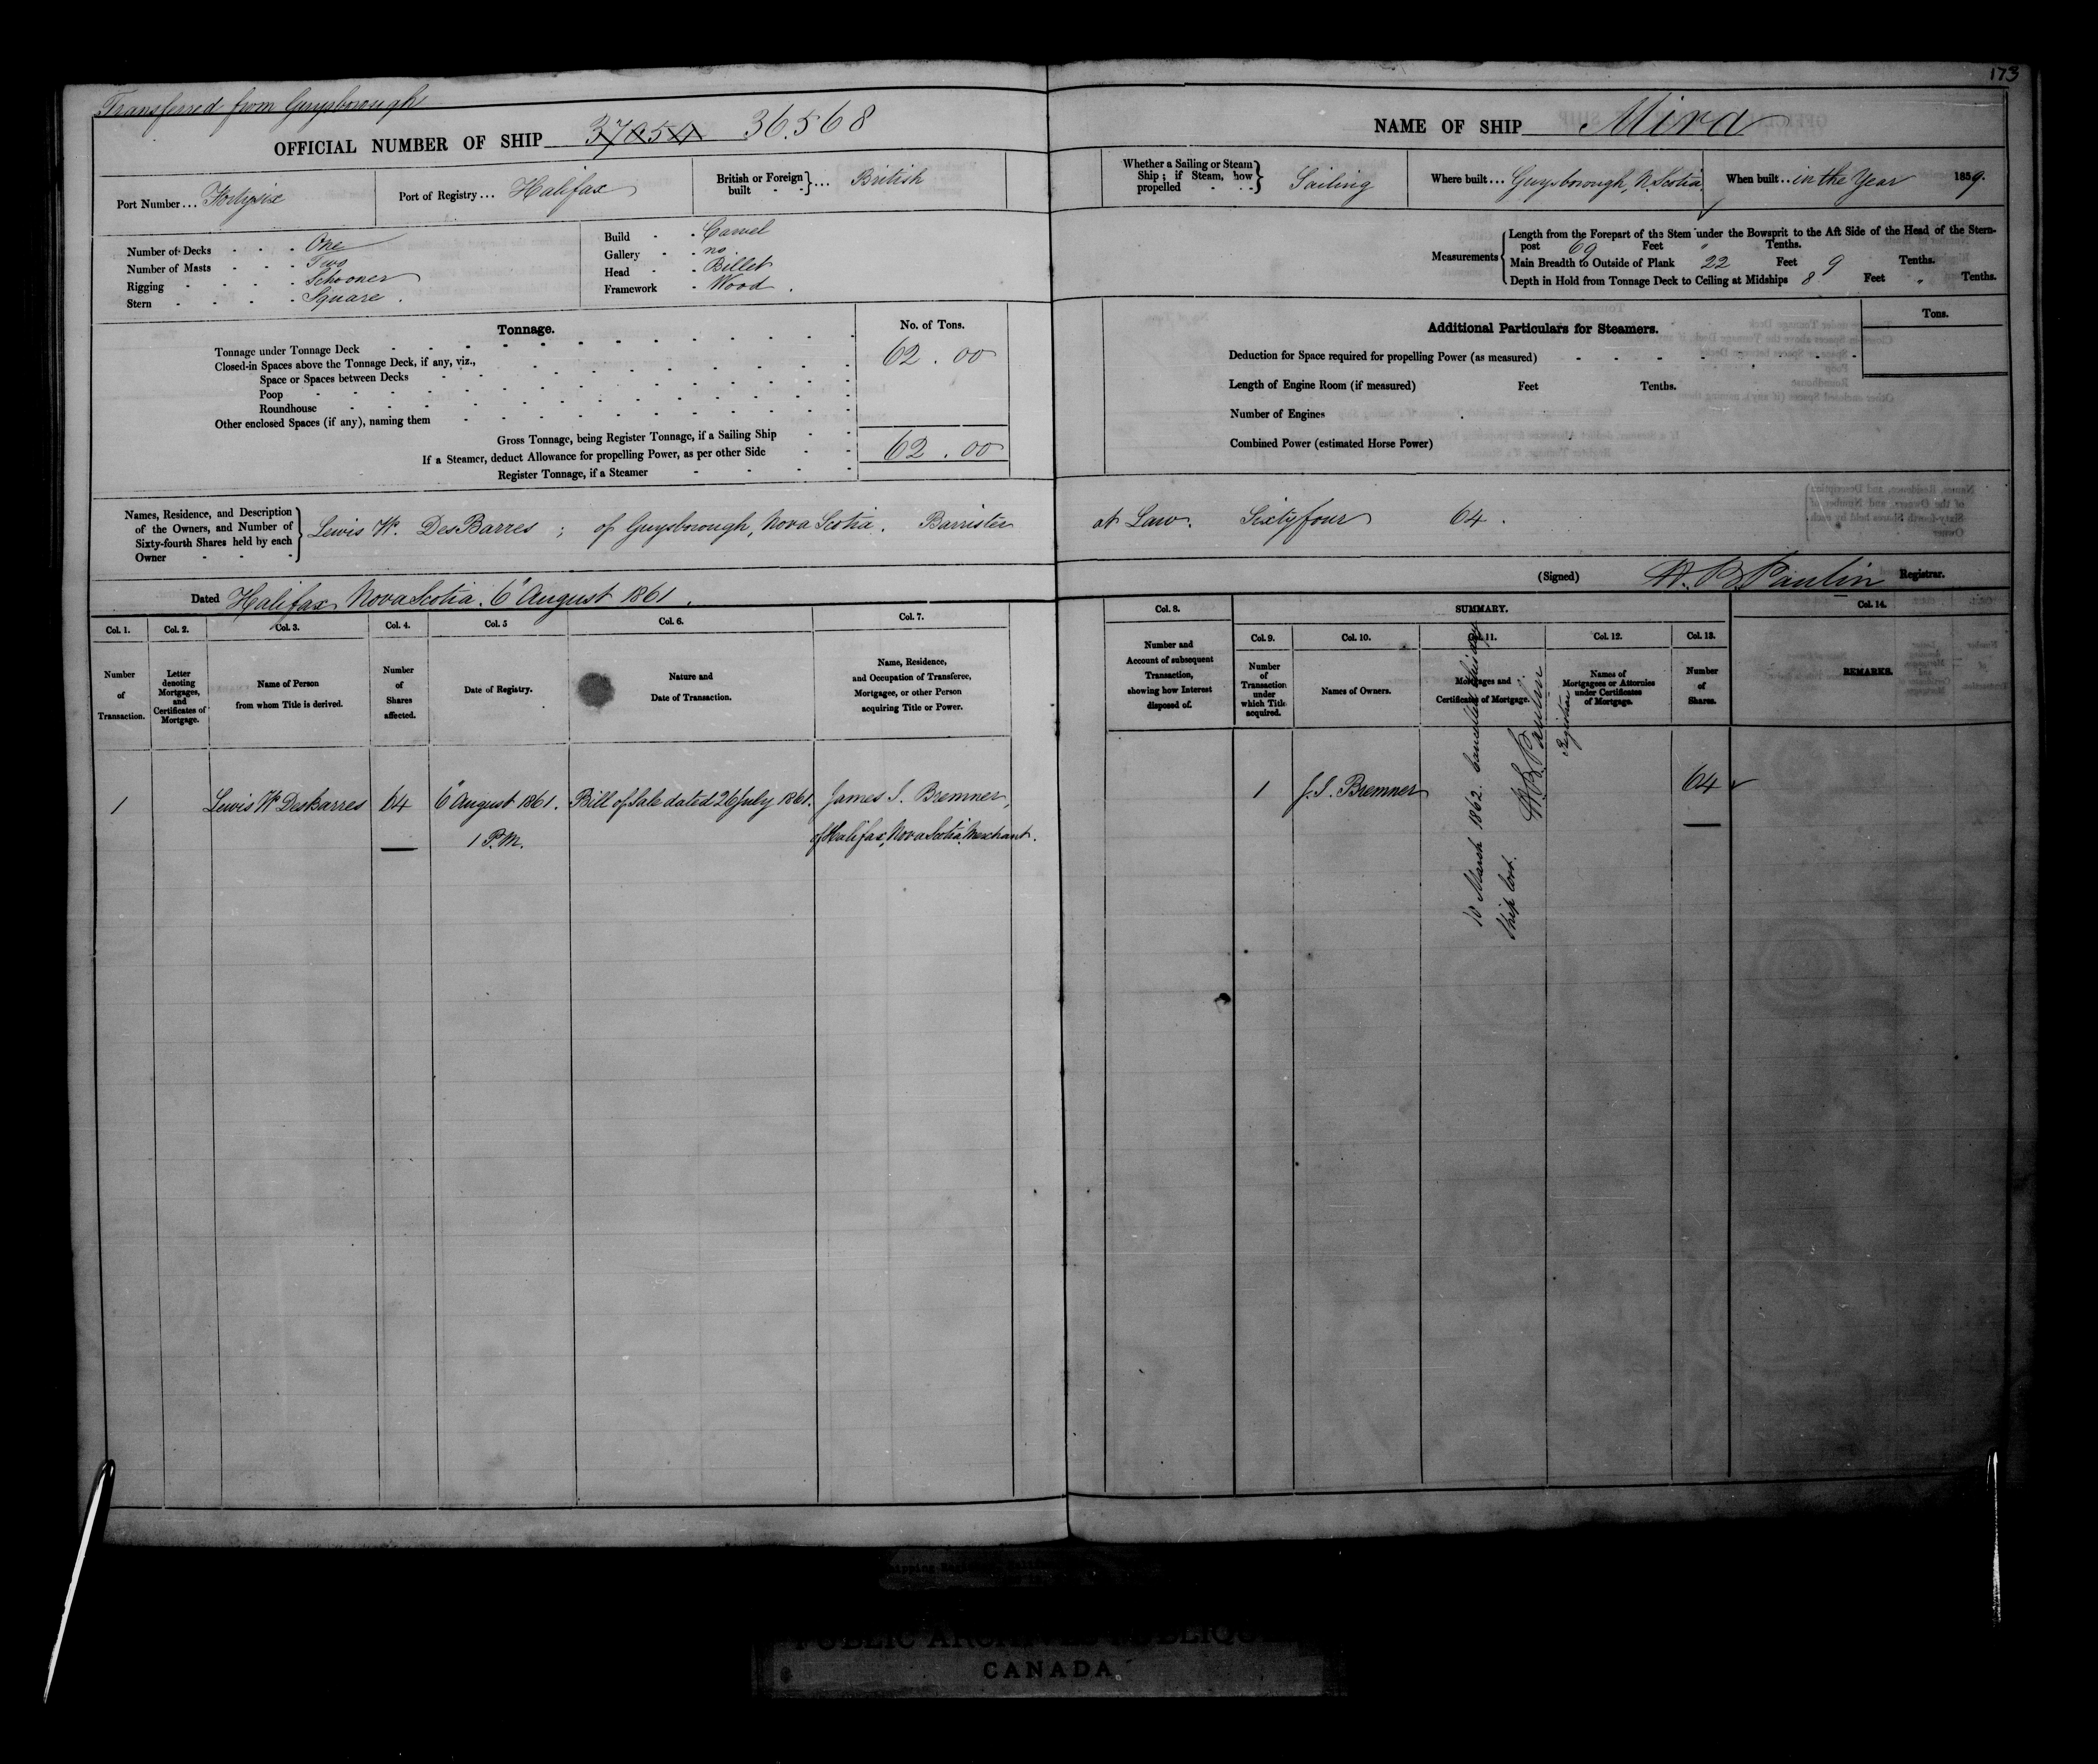 173
Transferred from Guysborough
OFFICIAL NUMBER OF SHIP 36.568
NAME OF SHIP Mira
Port Number... Fortysix
Port of Registry... Halifax
British or Foreign built } ... British
Whether a Sailing or Steam Ship; if Steam, how propelled } Sailing
Where built... Guysborough, N. Scotia
When built.. in the Year 1859.
Number of Decks One
Number of Masts Two
Rigging Schooner
Stern Square.
Build Carvel
Gallery no
Head Billet
Framework Wood.
Measurements
Length from the Forepart of the Stem under the Bowsprit to the Aft Side of the Head of the Stern-
post 69 Feet " Tenths.
Main Breadth to Outside of Plank 22 Feet 9 Tenths.
Depth in Hold from Tonnage Deck to Ceiling at Midships 8 Feet " Tenths.
Tonnage.
No. of Tons.
Tonnage under Tonnage Deck 62.00
Closed-in Spaces above the Tonnage Deck, if any, viz.,
Space or Spaces between Decks
Poop
Roundhouse
Other enclosed Spaces (if any), naming them
Gross Tonnage, being Register Tonnage, if a Sailing Ship 62.00
If a Steamer, deduct Allowance for propelling Power, as per other Side
Register Tonnage, if a Steamer
Additional Particulars for Steamers.
Tons.
Deduction for Space required for propelling Power (as measured)
Length of Engine Room (if measured) Feet Tenths.
Number of Engines
Combined Power (estimated Horse Power)
Names, Residence, and Description
of the Owners, and Number of
Sixty-fourth Shares held by each
Owner
Lewis W. DesBarres; of Guysborough, Nova Scotia. Barrister at Law. Sixty four 64.
Dated Halifax Nova Scotia. 6" August 1861.
(Signed) W. B Paulin Registrar.
Col. 1.
Number
of
Transaction.
Col. 2.
Letter
denoting
Mortgages,
and
Certificates of
Mortgage.
Col. 3.
Name of Person
from whom Title is derived.
Col. 4.
Number
of
Shares
affected.
Col. 5
Date of Registry.
Col. 6.
Nature and
Date of Transaction.
Col. 7.
Name, Residence,
and Occupation of Transferee,
Mortgagee, or other Person
acquiring Title or Power.
Col. 8.
Number and
Account of subsequent
Transaction,
showing how Interest
disposed of.
SUMMARY.
Col. 9.
Number
of
Transaction
under
which Title
acquired.
Col. 10.
Names of Owners.
Col. 11.
Mortgages and
Certificates of Mortgage.
Col. 12.
Names of
Mortgagees or Attornies
under Certificates
of Mortgage.
Col. 13.
Number
of
Shares.
Col. 14.
REMARKS.
1 Lewis W DesBarres 64 6" August 1861. Bill of Sale dated 26 July 1861. James J. Bremner,
1 P.M. of Halifax, Nova Scotia, Merchant.
1 J. J. Bremner 64
10 March 1862. Cancelled this day
Ship lost. W. B. Paulin
Registrar
PUBLIC ARCHIVES PUBLIQUES
CANADA